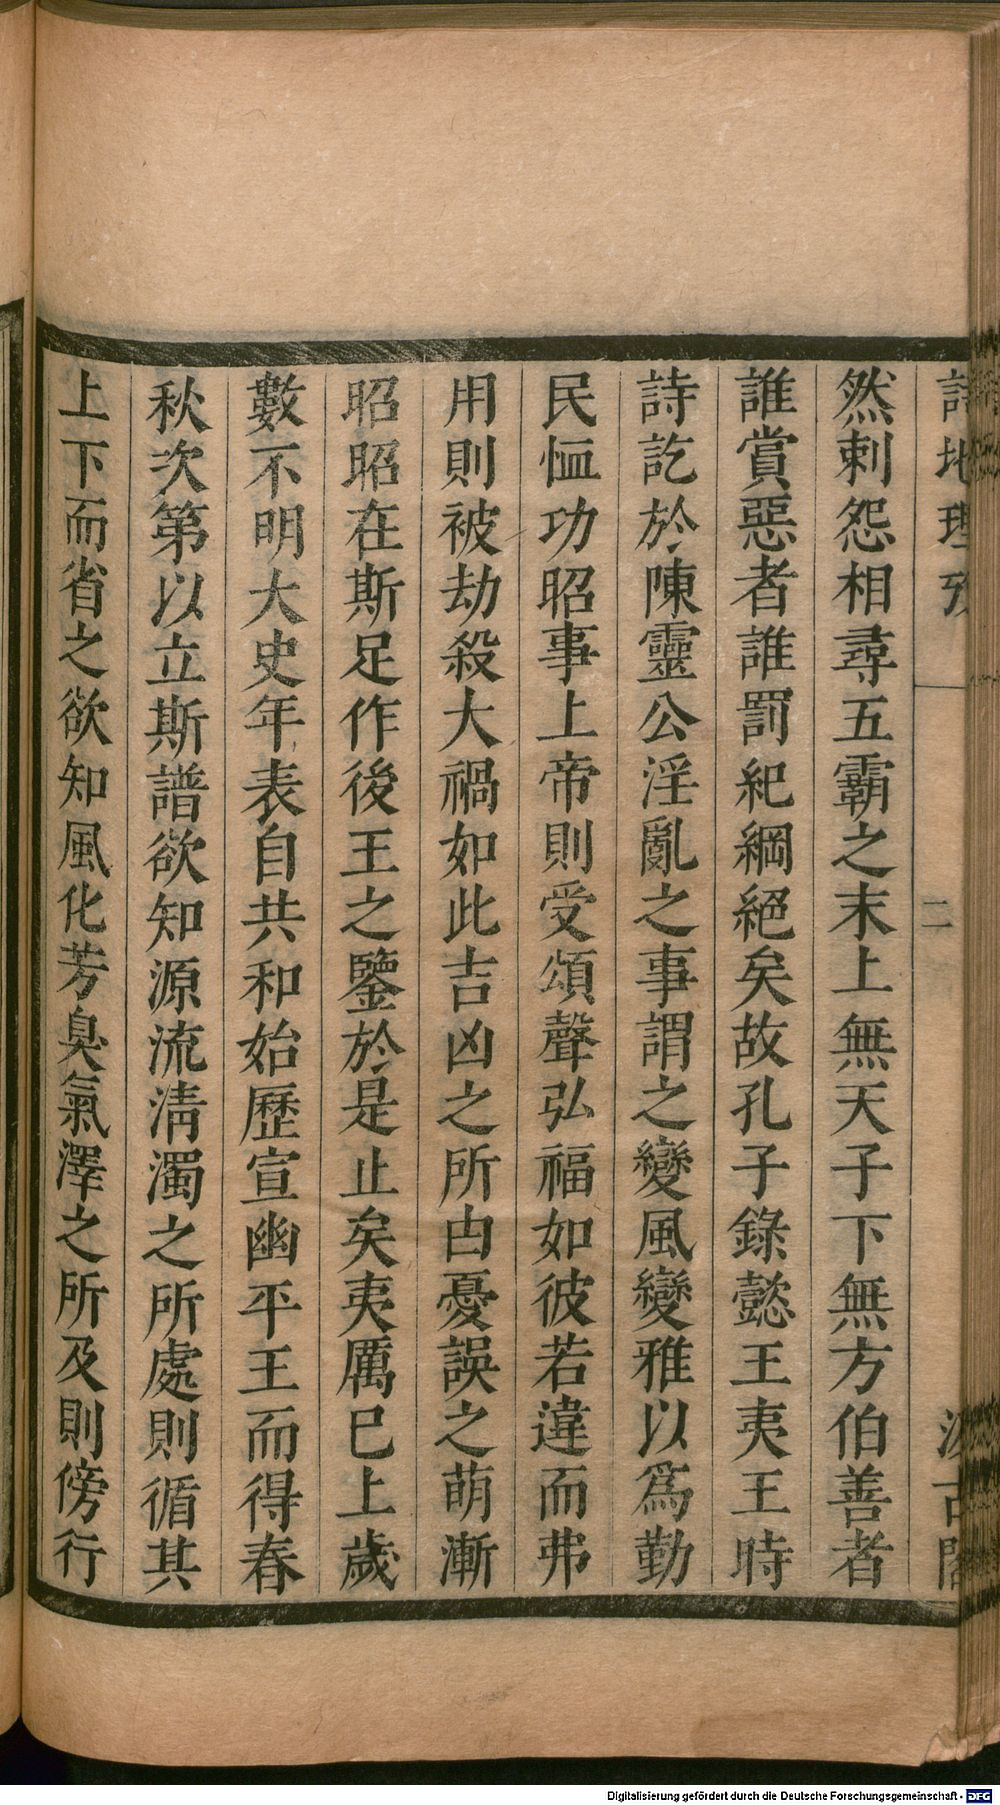 詩地理攷 二 汲古閣
然刺怨相尋五霸之末上無天子下無方伯善者
誰賞惡者誰罰紀綱絕矣故孔子錄懿王夷王時
詩訖於陳靈公淫亂之事謂之變風變雅以爲勤
民恤功昭事上帝則受頌聲弘福如彼若違而弗
用則被劫殺大禍如此吉凶之所由憂誤之萌漸
昭昭在斯足作後王之鑒於是止矣夷厲巳上歲
數不明大史年表自共和始歷宣幽平王而得春
秋次第以立斯譜欲知源流淸濁之所處則循其
上下而省之欲知風化芳臭氣澤之所及則傍行
Digitalisierung gefördert durch die Deutsche Forschungsgemeinschaft - DFG